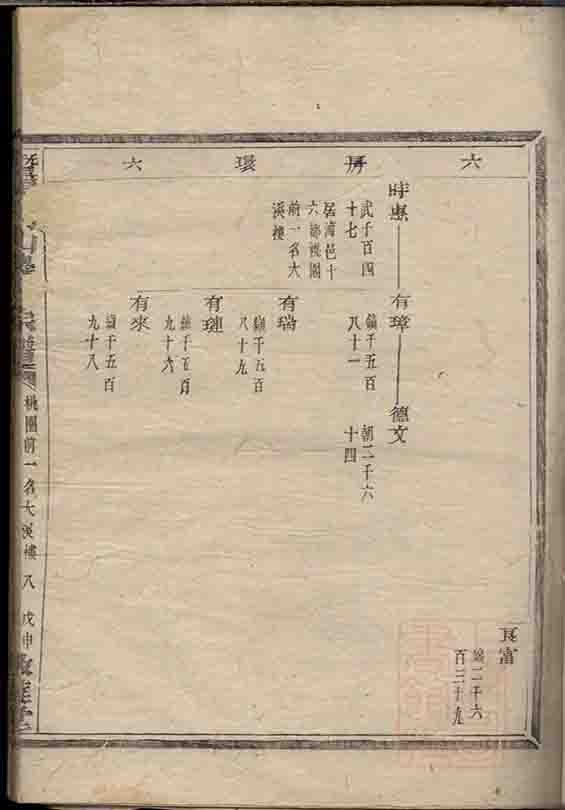 六 房 環 六
良富
二千六
百三十九
時惠
武千百四
十七
居漳邑十
六都桃園
前一名大
溪樓
有璋
千五百
八十一
德文
朝二千六
十四
有瑞
千五百
八十九
有璉
千五百
九十六
有來
千五百
九十八
桃園前一名大溪樓 八 戊申